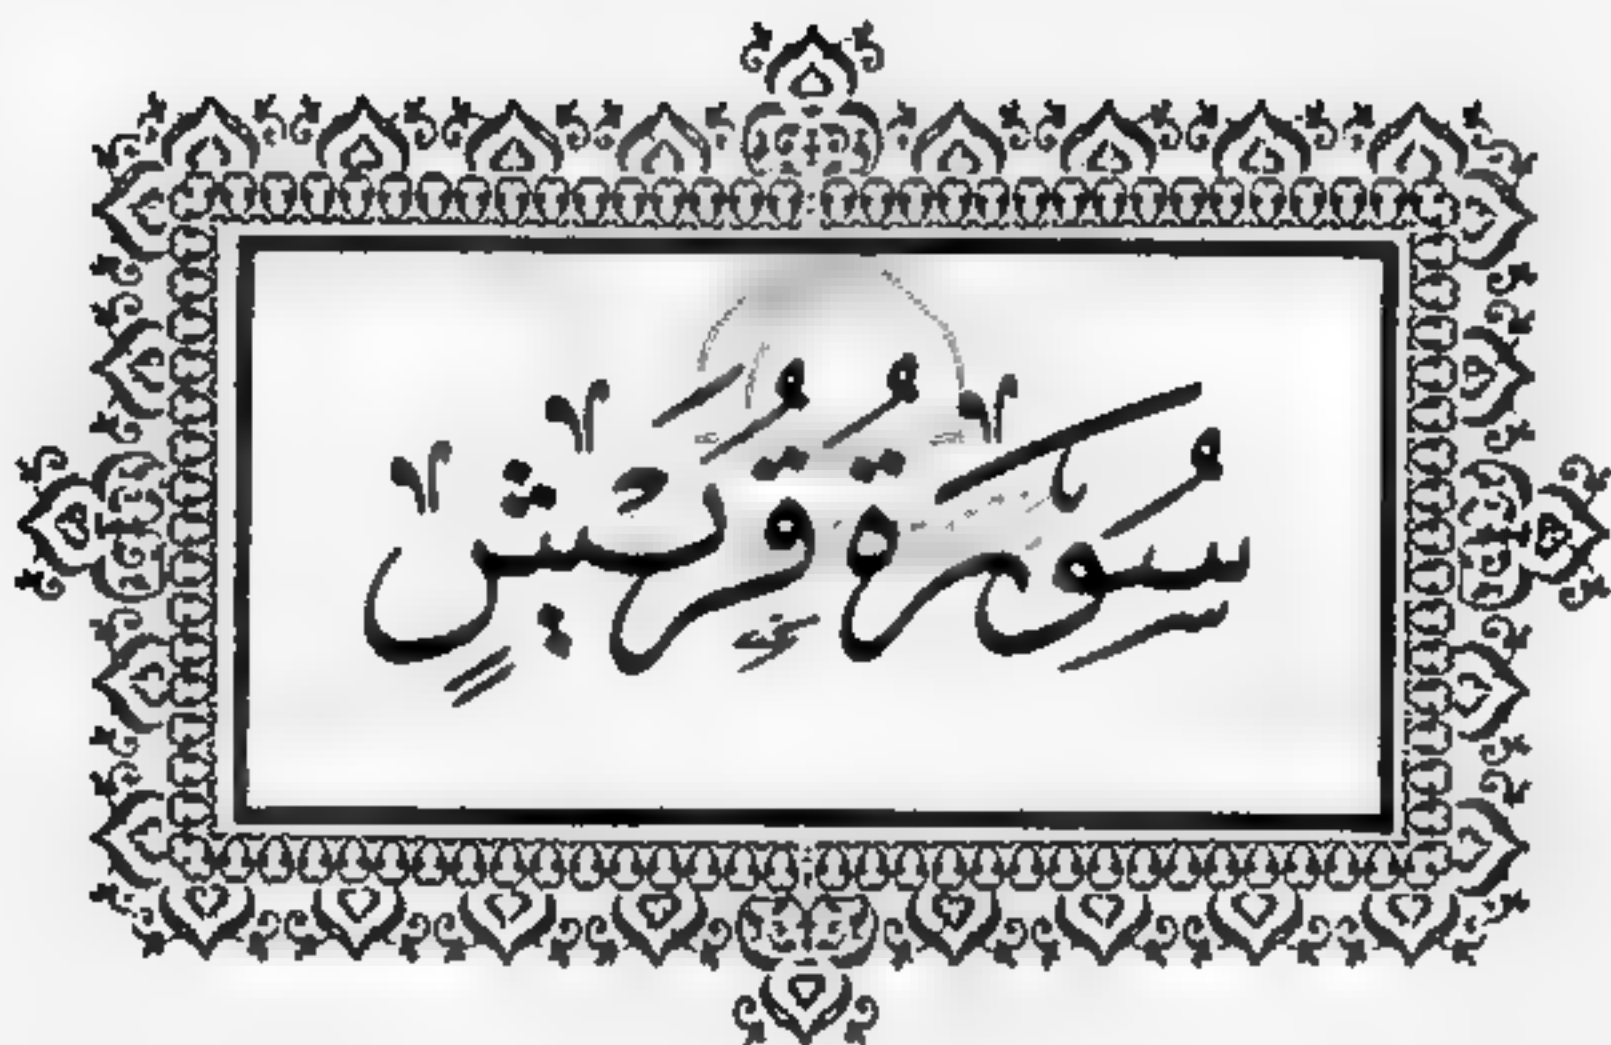 سُورَةُ قُرَيْشٍ